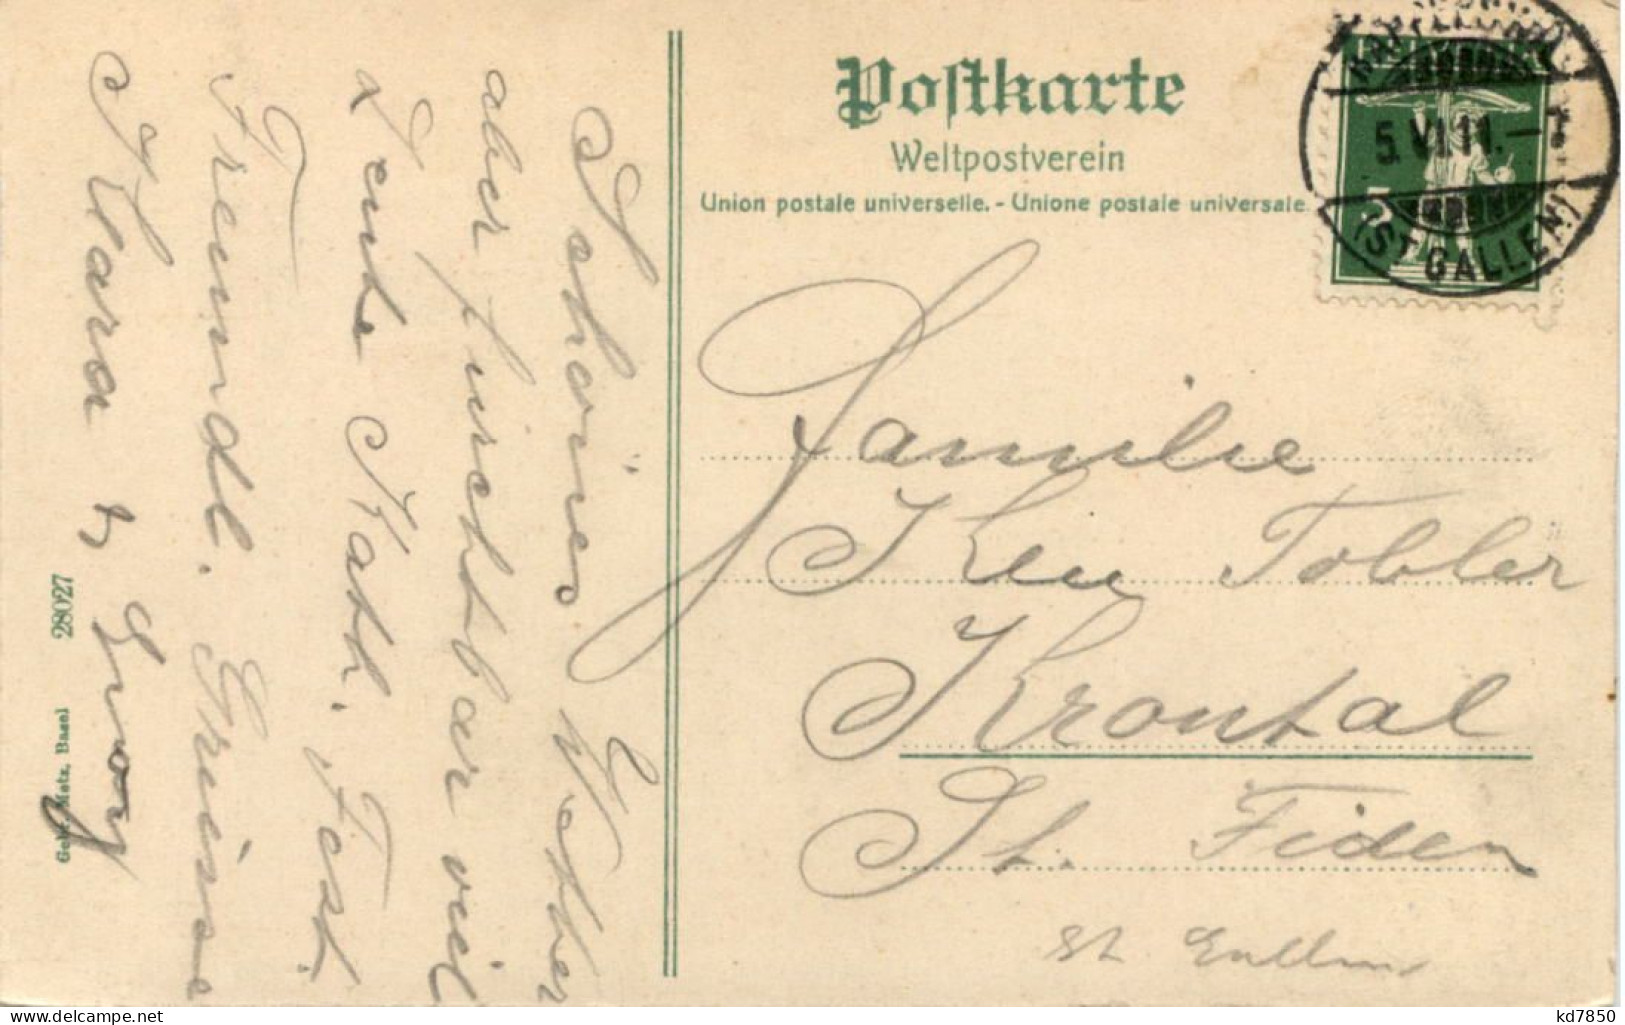 Postkarte
Weltpostverein
Union postale universelle. - Unione postale universale
5. VI. 11. – 7
(ST. GALLEN)
5
Familie
Klen Tobler
Krontal
St. Fiden
St. Gallen
Schönes Wetter
aber furchtbar viel
Leute Kath. Fest.
Freundl. Grüsse
Klara & Georg
Gebr. Metz, Basel 28027
delcampe.net
kd7850